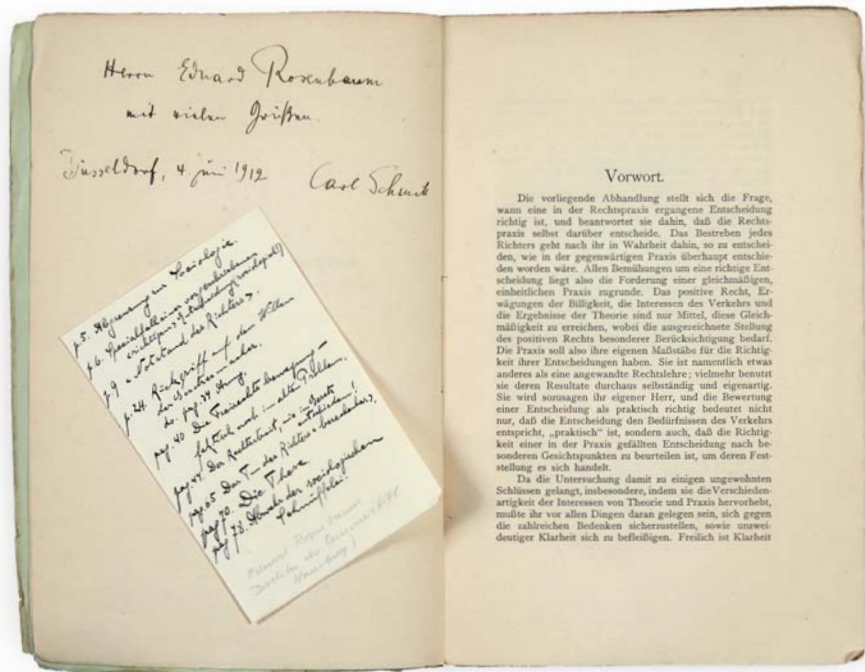 Herrn Eduard Rosenbaum
mit vielen Grüßen.
Düsseldorf, 4 Juni 1912
Carl Schmitt
p. 5. Abgrenzung zur Soziologie.
p. 6. Spezialfall
p. 9 „Notstand des Richters".
p. 24. Rückgriff auf den Willen
do. pag. 39 Anm.
pag. 40 Die Freirechtsbewegung –
pag. 47. Der Rechtsstreit, wie im
pag. 65 Das T– des Richters
pag 70. Die These
pag 78. Abwehr der soziologischen
Schnüffelei!
Eduard Rosenbaum
Vorwort.
Die vorliegende Abhandlung stellt sich die Frage,
wann eine in der Rechtspraxis ergangene Entscheidung
richtig ist, und beantwortet sie dahin, daß die Rechts-
praxis selbst darüber entscheide. Das Bestreben jedes
Richters geht nach ihr in Wahrheit dahin, so zu entschei-
den, wie in der gegenwärtigen Praxis überhaupt entschie-
den worden wäre. Allen Bemühungen um eine richtige Ent-
scheidung liegt also die Forderung einer gleichmäßigen,
einheitlichen Praxis zugrunde. Das positive Recht, Er-
wägungen der Billigkeit, die Interessen des Verkehrs und
die Ergebnisse der Theorie sind nur Mittel, diese Gleich-
mäßigkeit zu erreichen, wobei die ausgezeichnete Stellung
des positiven Rechts besonderer Berücksichtigung bedarf.
Die Praxis soll also ihre eigenen Maßstäbe für die Richtig-
keit ihrer Entscheidungen haben. Sie ist namentlich etwas
anderes als eine angewandte Rechtslehre; vielmehr benutzt
sie deren Resultate durchaus selbständig und eigenartig.
Sie wird sozusagen ihr eigener Herr, und die Bewertung
einer Entscheidung als praktisch richtig bedeutet nicht
nur, daß die Entscheidung den Bedürfnissen des Verkehrs
entspricht, „praktisch" ist, sondern auch, daß die Richtig-
keit einer in der Praxis gefällten Entscheidung nach be-
sonderen Gesichtspunkten zu beurteilen ist, um deren Fest-
stellung es sich handelt.
Da die Untersuchung damit zu einigen ungewohnten
Schlüssen gelangt, insbesondere, indem sie die Verschieden-
artigkeit der Interessen von Theorie und Praxis hervorhebt,
mußte ihr vor allen Dingen daran gelegen sein, sich gegen
die zahlreichen Bedenken sicherzustellen, sowie unzwei-
deutiger Klarheit sich zu befleißigen. Freilich ist Klarheit